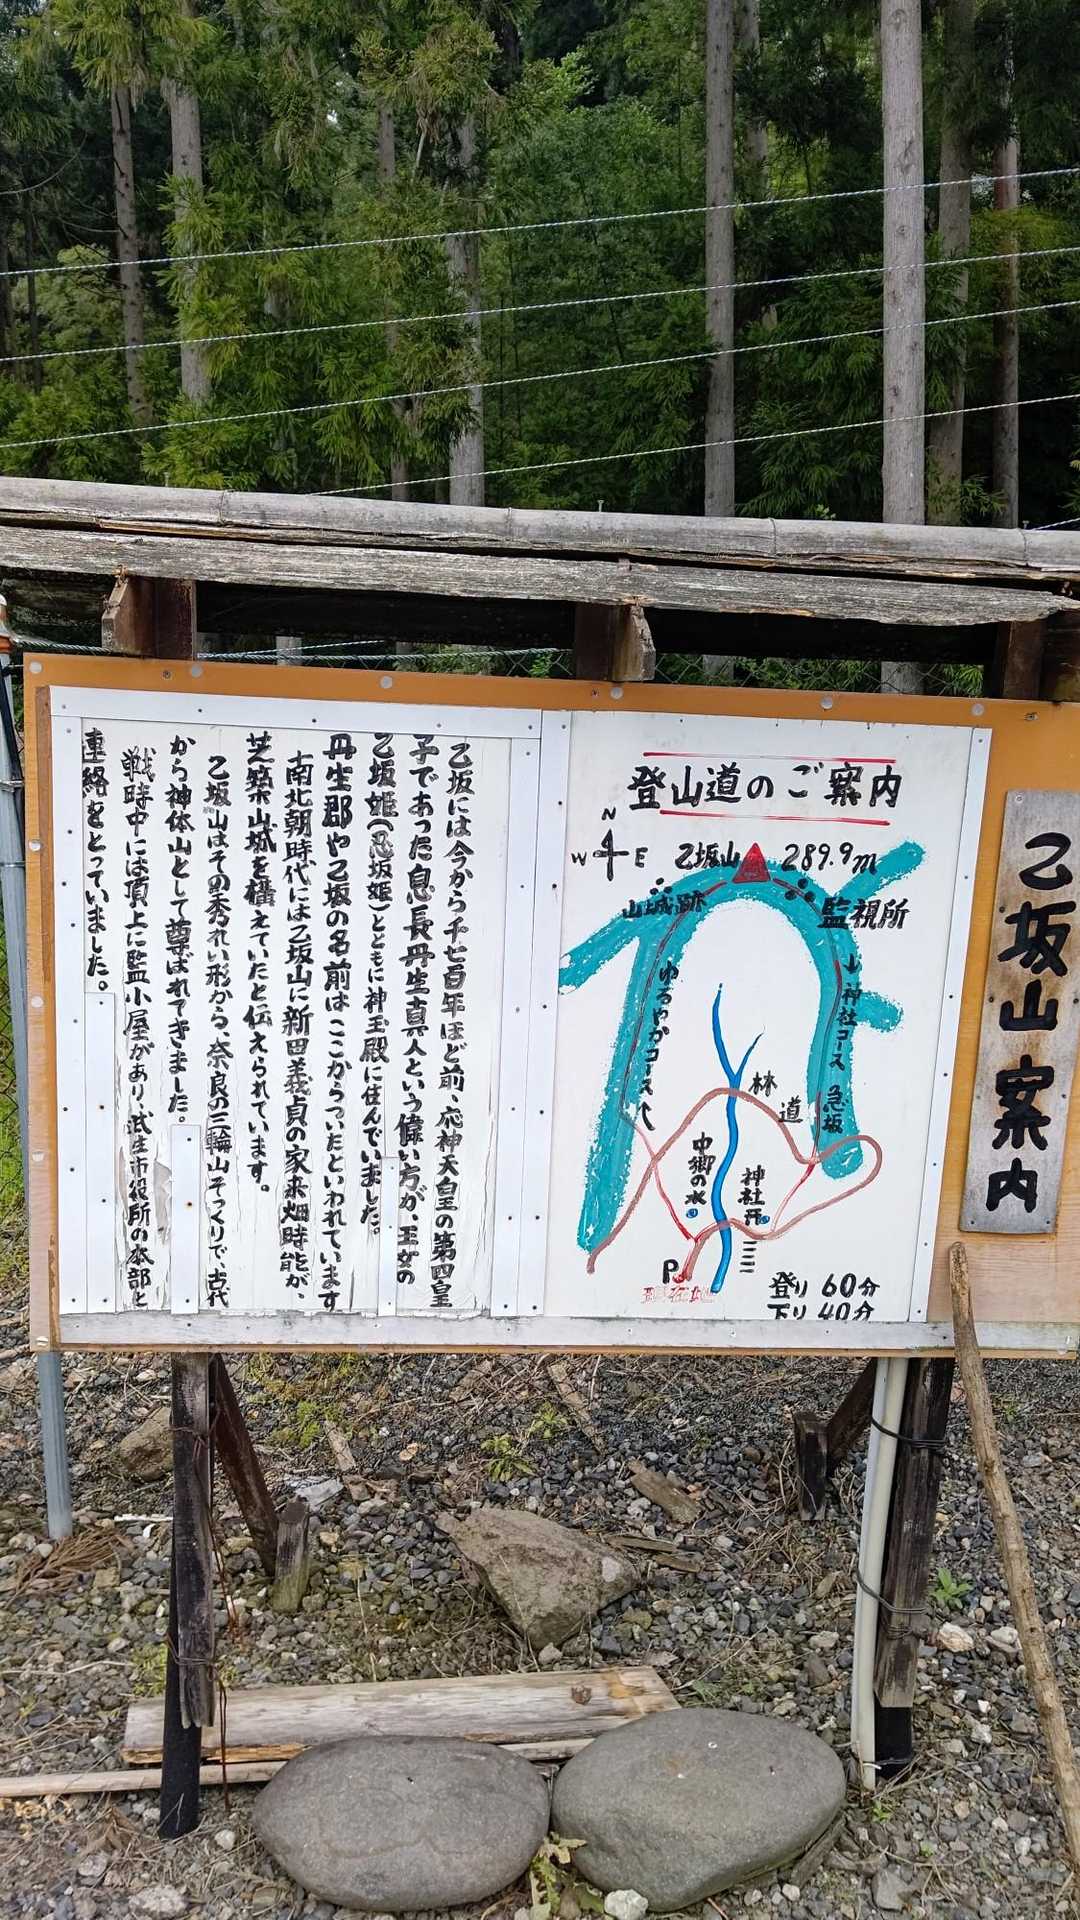 乙坂山案内
登山道のご案内
N
W E
乙坂山 289.9m
山城跡
監視所
ゆるやかコース
神社コース
急坂
林道
中郷の水
神社
P
登り 60分
下り 40分
乙坂には今から千七百年ほど前、応神天皇の第四皇
子であった息長丹生真人という偉い方が、王女の
乙坂姫(忍坂姫)とともに神玉殿に住んでいました。
丹生郡や乙坂の名前はここからついたといわれています
南北朝時代には乙坂山に新田義貞の家来畑時能が、
芝築山城を構えていたと伝えられています。
乙坂山はその秀れい形から、奈良の三輪山そっくりで、古代
から神体山として尊ばれてきました。
戦時中には頂上に監小屋があり、武生市役所の本部と
連絡をとっていました。